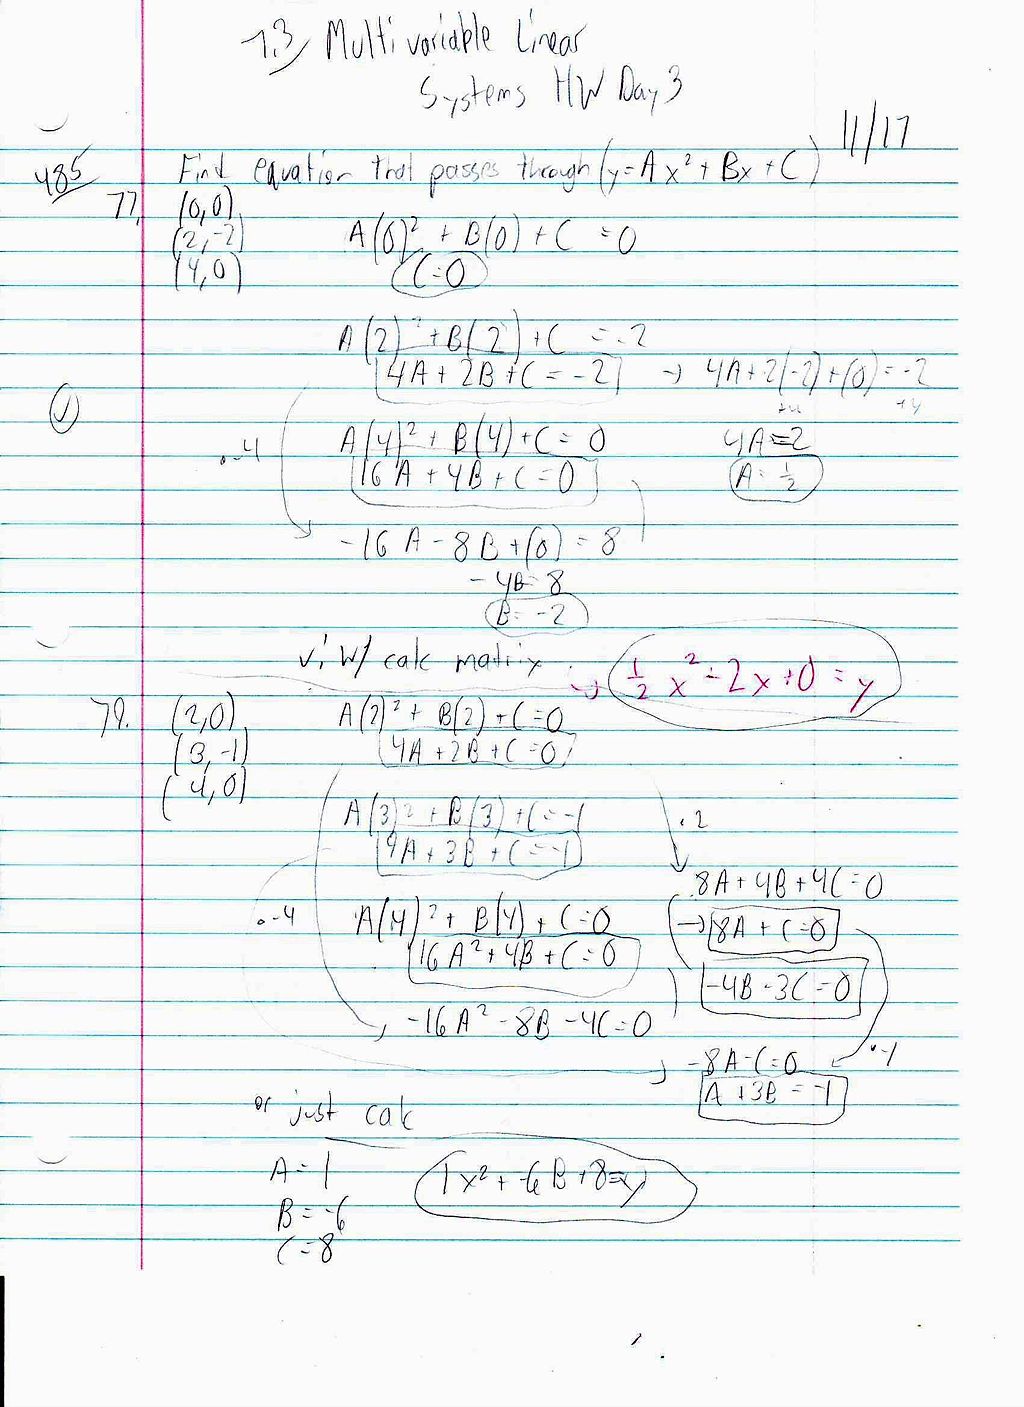 7.3 Multivariable Linear
Systems HW Day 3
11/17
485 Find equation that passes through (y = Ax² + Bx + C)
77. (0,0)
(2,-2) A(0)² + B(0) + C = 0
(4,0) C=0
A(2)² + B(2) + C = -2
4A + 2B + C = -2 → 4A + 2(-2) + (0) = -2
+4 +4
A(4)² + B(4) + C = 0 4A = 2
·-4 16A + 4B + C = 0 A = 1/2
-16A - 8B + (0) = 8
-4B = 8
B = -2
√: w/ calc matrix. → 1/2 x² - 2x + 0 = y
79. (2,0) A(2)² + B(2) + C = 0
(3,-1) 4A + 2B + C = 0
(4,0)
A(3)² + B(3) + C = -1 ·2
9A + 3B + C = -1
8A + 4B + 4C = 0
·-4 A(4)² + B(4) + C = 0 → 8A + C = 0
16A² + 4B + C = 0
-4B - 3C = 0
-16A² - 8B - 4C = 0
·-1
-8A - C = 0
A + 3B = -1
or just calc
A = 1 1x² + -6B + 8 = y
B = -6
C = 8